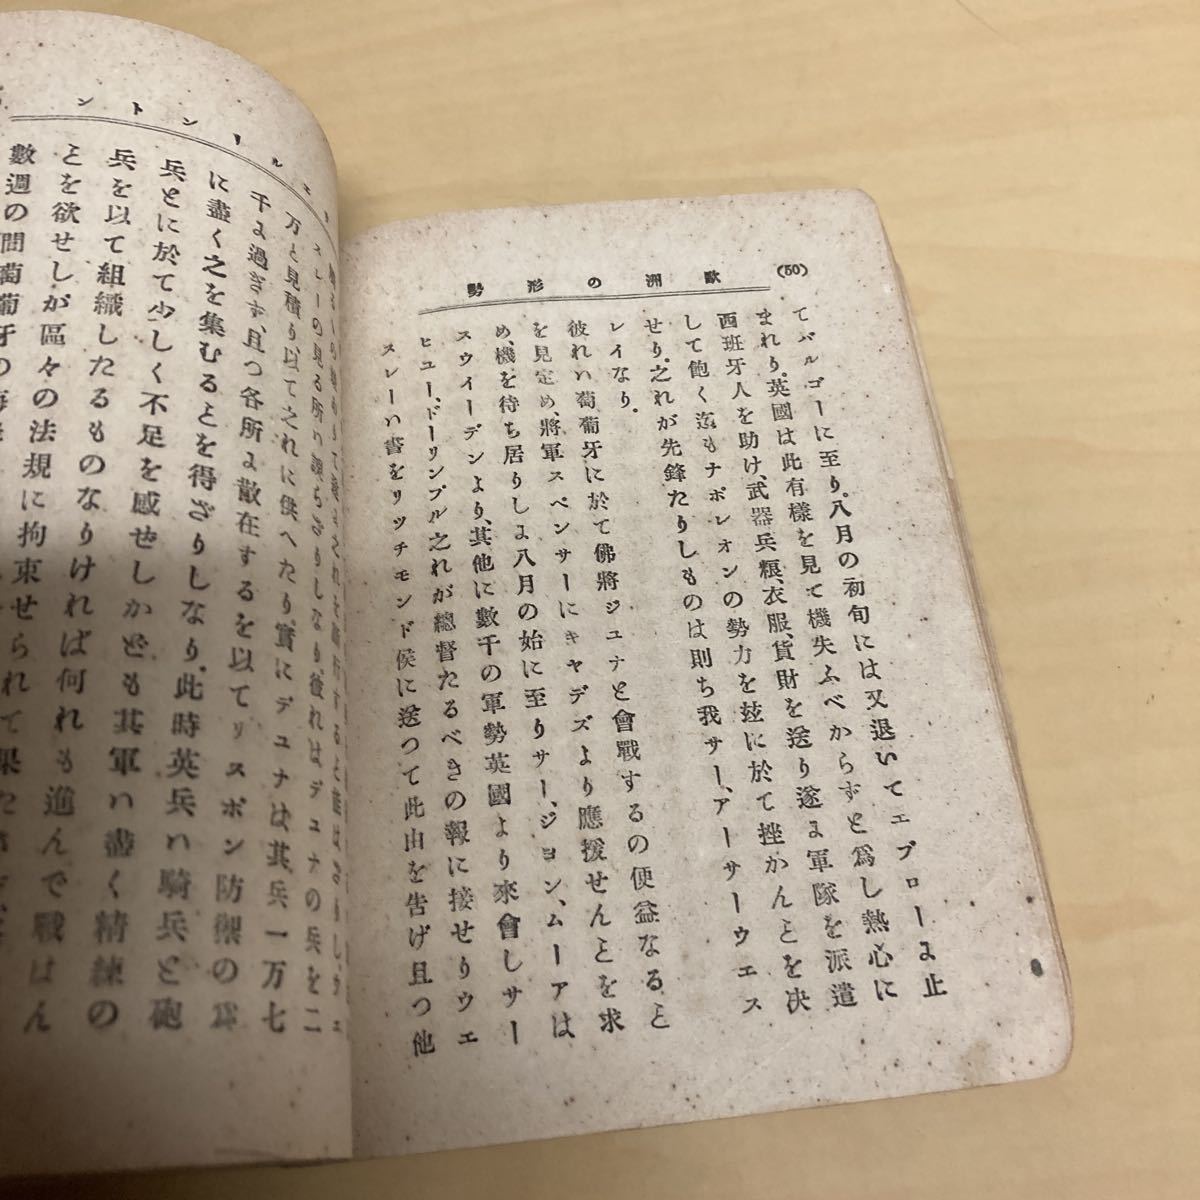 (50)
歐洲の形勢
てバルゴーに至り。八月の初旬には又退いてエブローよ止
まれり。英國は此有樣を見て機失ふべからずと爲し熱心に
西班牙人を助け、武器兵粮、衣服、貨財を送り遂よ軍隊を派遣
して飽く迄もナポレオンの勢力を玆に於て挫かんとを决
せり。之れが先鋒たりしものは則ち我サー、アーサーウエス
レイなり。
彼れハ葡萄牙に於て佛將ジユナと會戰するの便益なると
を見定め、將軍スペンサーにキヤデズより應援せんとを求
め、機を待ち居りしよ八月の始に至りサー、ジヨン、ムーアは
スウイーデンより、其他に數千の軍勢英國より來會しサー
ヒユー、ドーリンプル之れが總督たるべきの報に接せりウエ
スレーハ書をリツチモンド侯に送つて此由を告げ且つ他
ルリントン
スレーの見る所ハ誤らざりしなり、彼れはデユナの兵を二
万と見積り以て之れに供へたり、實にデユナは其兵一万七
千よ過ぎず、且つ各所よ散在するを以てリスボン防禦の爲
に盡く之を集むるとを得ざりしなり。此時英兵ハ騎兵と砲
兵とに於て少しく不足を感せしかども其軍ハ盡く精練の
兵を以て組織したるものなりければ何れも進んで戰はん
とを欲せしが區々の法規に拘束せられて果た
數週の間葡萄牙の